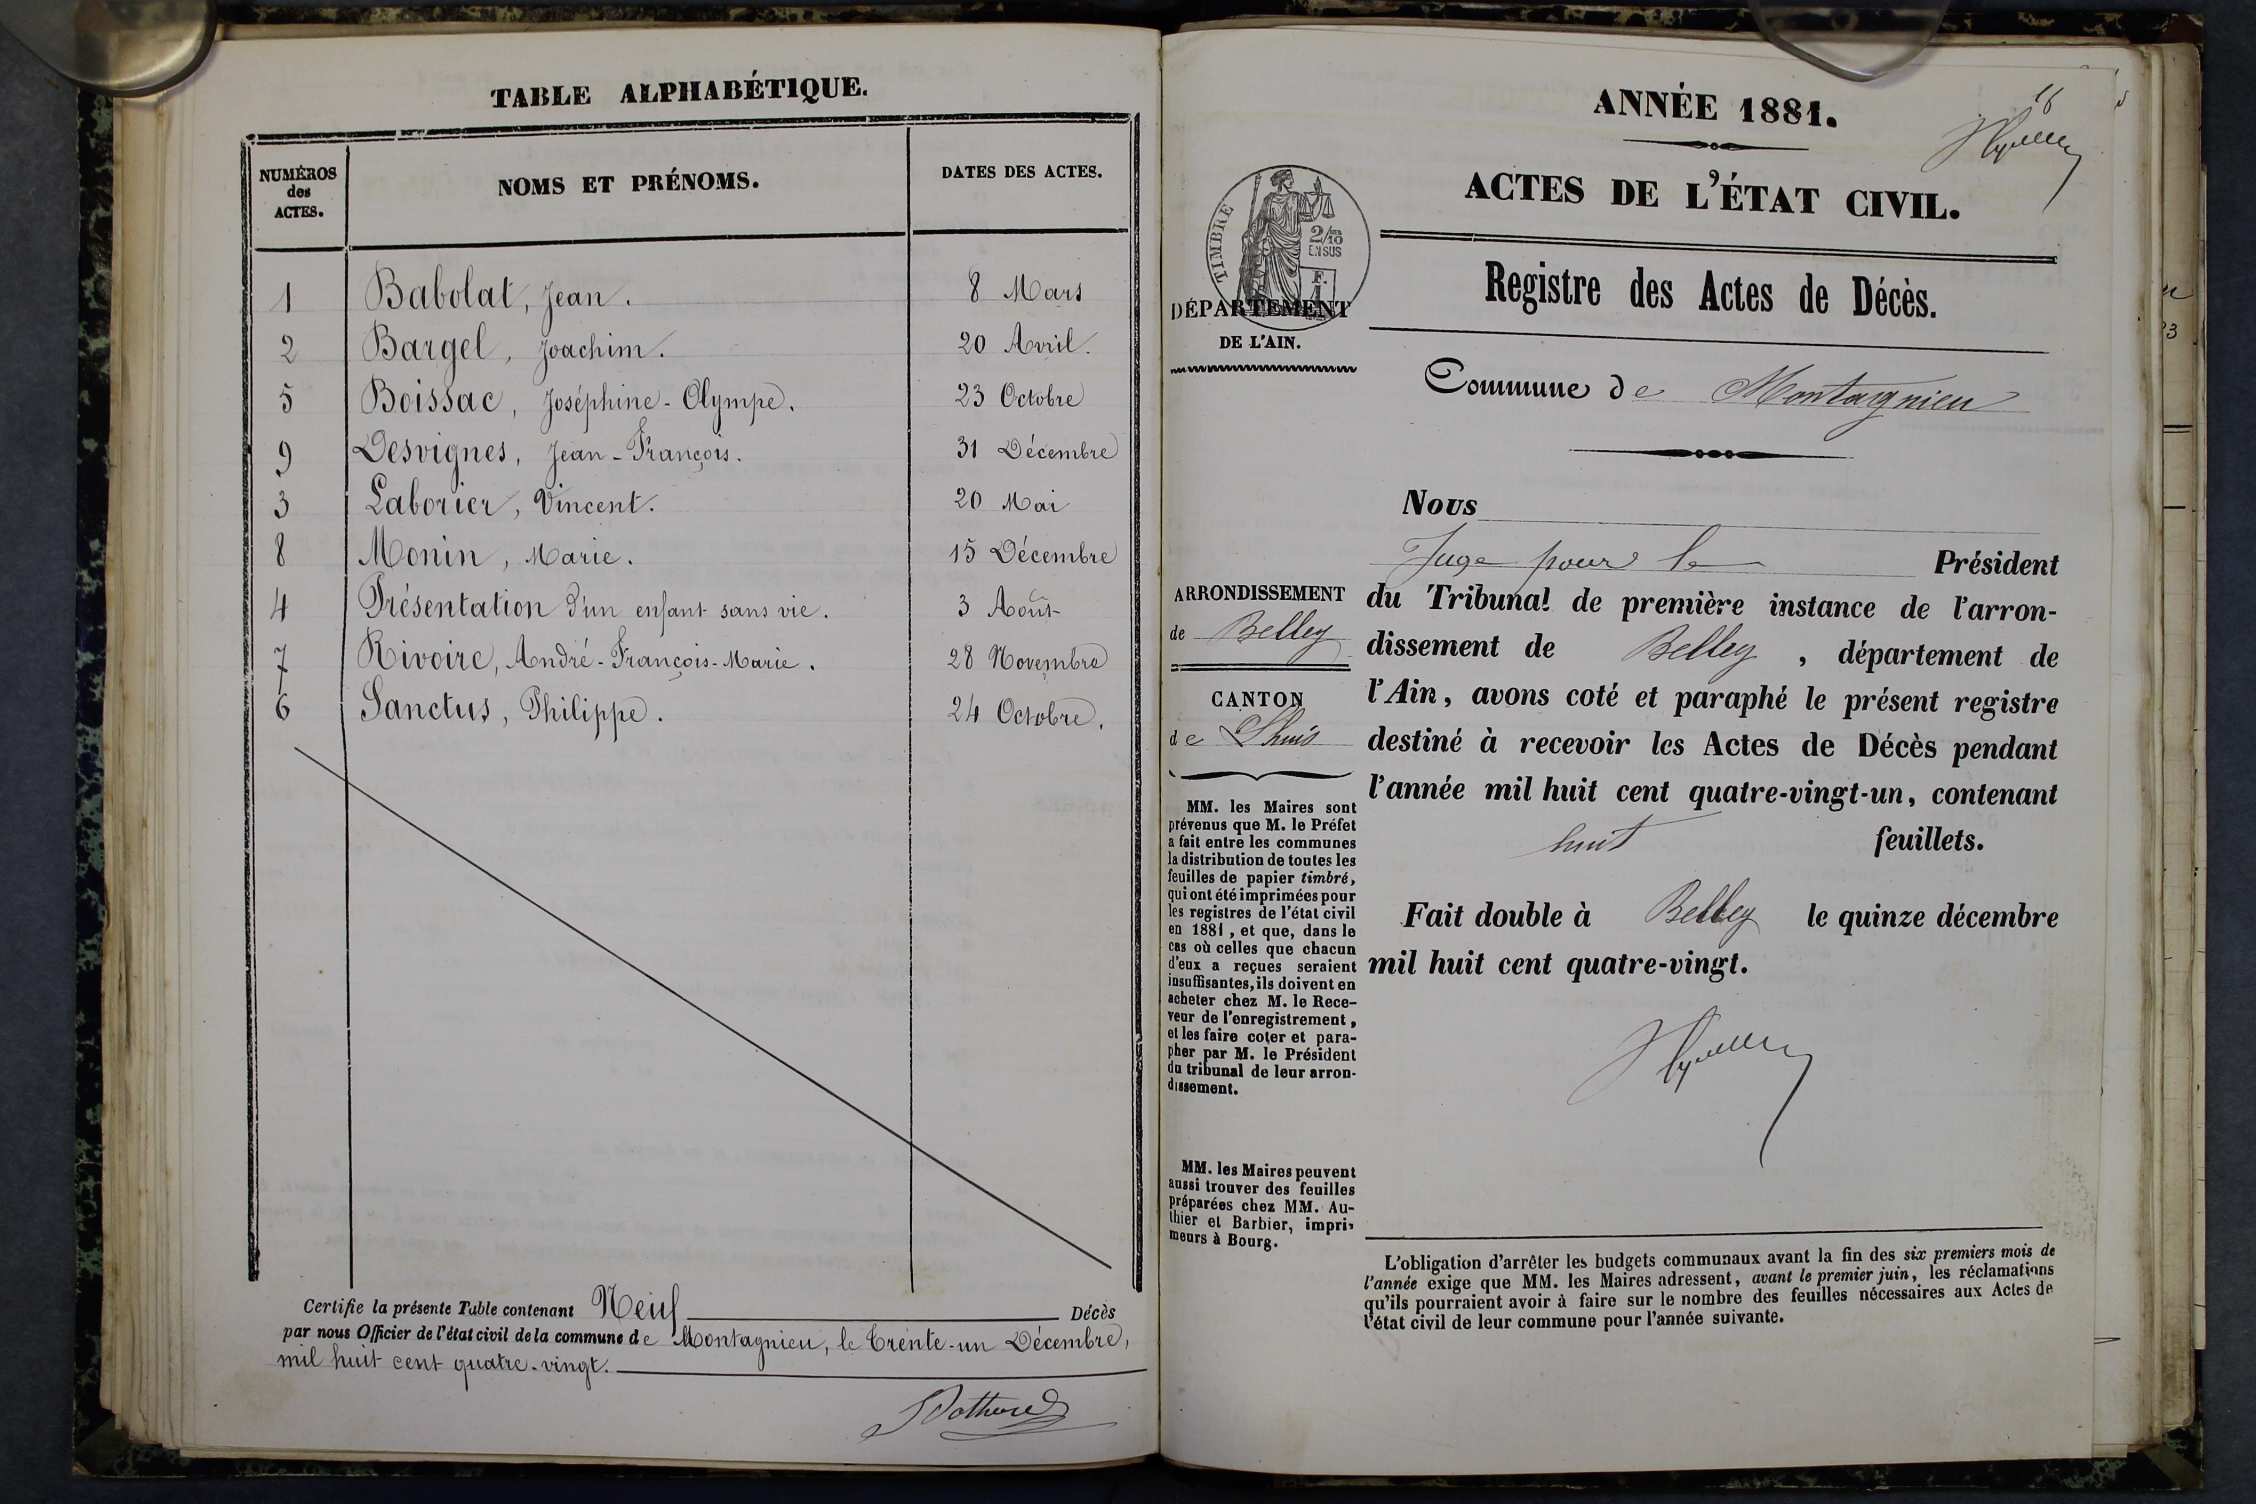 TABLE ALPHABÉTIQUE.
NUMÉROS des ACTES. NOMS ET PRÉNOMS. DATES DES ACTES.
1 Babolat, Jean. 8 Mars
2 Bargel, Joachim. 20 Avril.
5 Boissac, Joséphine-Olympe. 23 Octobre
9 Desvignes, Jean-François. 31 Décembre
3 Laborier, Vincent. 20 Mai
8 Monin, Marie. 15 Décembre
4 Présentation d'un enfant sans vie. 3 Août
7 Rivoire, André-François-Marie. 28 Novembre
6 Sanctus, Philippe. 24 Octobre.
Certifie la présente Table contenant Neuf Décès
par nous Officier de l'état civil de la commune de Montagnieu, le trente-un Décembre,
mil huit cent quatre-vingt.
ANNÉE 1881.
16
ACTES DE L'ÉTAT CIVIL.
TIMBRE
2/10
EN SUS
F.
1
DÉPARTEMENT
DE L'AIN.
Registre des Actes de Décès.
Commune de Montagnieu
Nous
Juge pour le Président
du Tribunal de première instance de l'arron-
dissement de Belley, département de
l'Ain, avons coté et paraphé le présent registre
destiné à recevoir les Actes de Décès pendant
l'année mil huit cent quatre-vingt-un, contenant
huit feuillets.
Fait double à Belley le quinze décembre
mil huit cent quatre-vingt.
ARRONDISSEMENT
de Belley
CANTON
de Lhuis
MM. les Maires sont
prévenus que M. le Préfet
a fait entre les communes
la distribution de toutes les
feuilles de papier timbré,
qui ont été imprimées pour
les registres de l'état civil
en 1881, et que, dans le
cas où celles que chacun
d'eux a reçues seraient
insuffisantes, ils doivent en
acheter chez M. le Rece-
veur de l'enregistrement,
et les faire coter et para-
pher par M. le Président
du tribunal de leur arron-
dissement.
MM. les Maires peuvent
aussi trouver des feuilles
préparées chez MM. Au-
thier et Barbier, impri-
meurs à Bourg.
L'obligation d'arrêter les budgets communaux avant la fin des six premiers mois de
l'année exige que MM. les Maires adressent, avant le premier juin, les réclamations
qu'ils pourraient avoir à faire sur le nombre des feuilles nécessaires aux Actes de
l'état civil de leur commune pour l'année suivante.